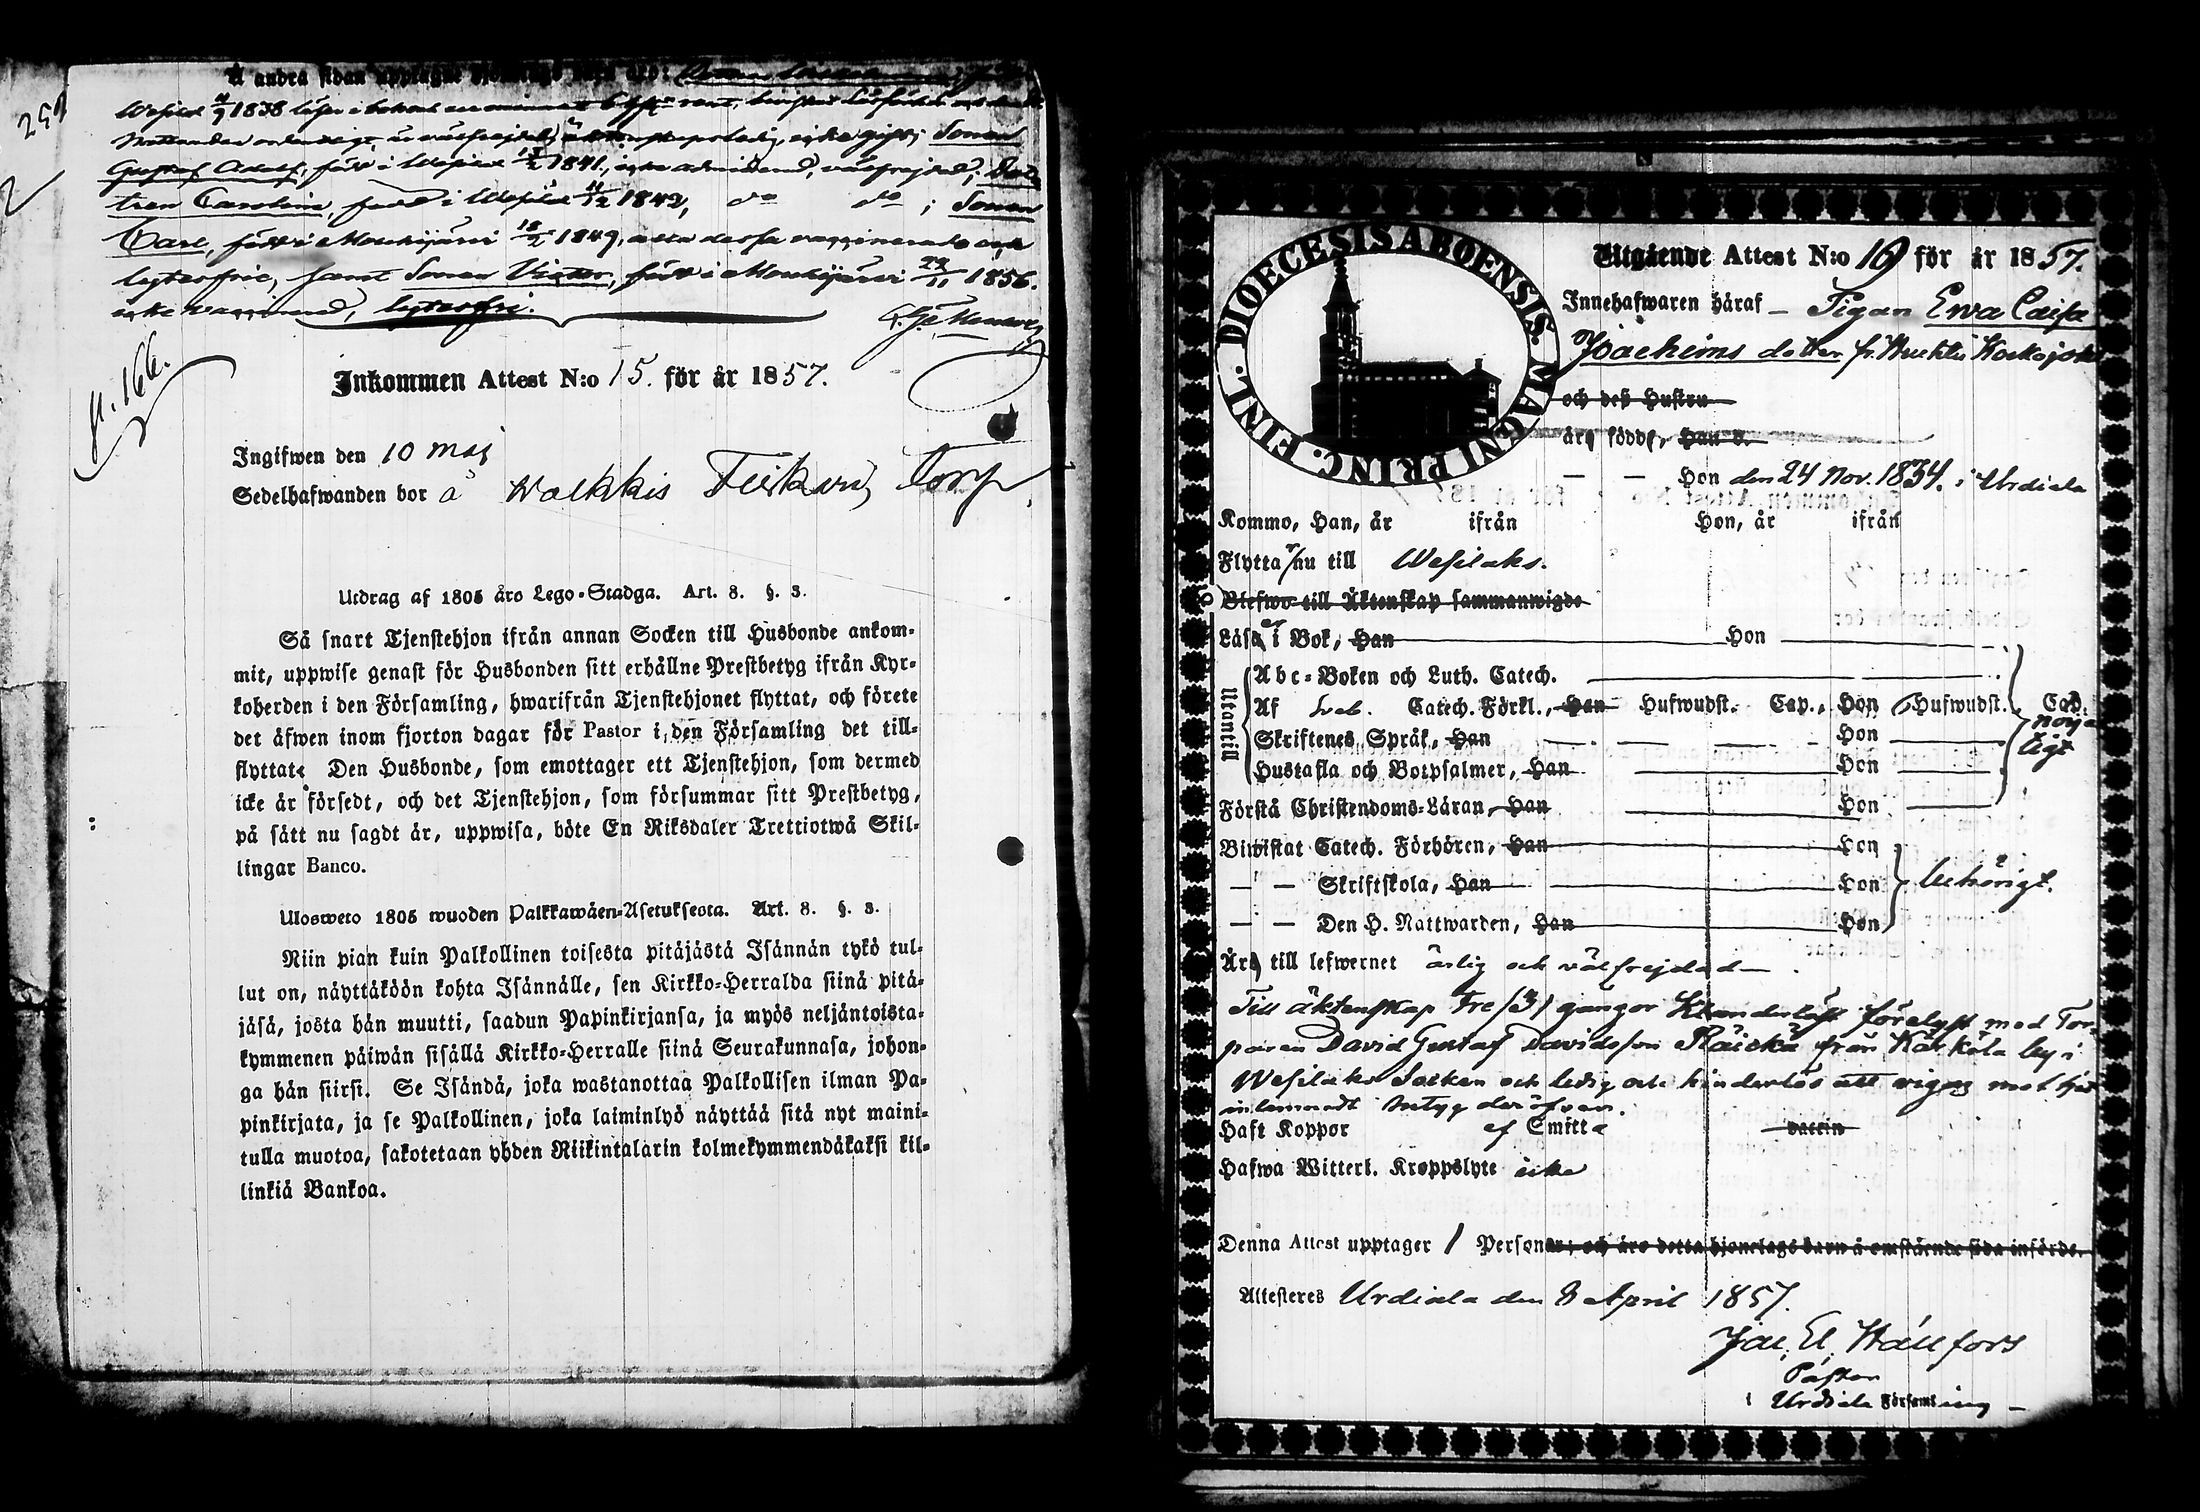 Å andra sidan
Wesilax 4/9 1838 läser i bokord
Nattvarden ordentligt, är välfrejdad, ledig, icke gift; Sonen
Gustaf Adolf, född i Wesilax 1841, icke admitterad, välfrejdad; Dot-
tren Carolina, född i Wesilax 11/12 1842, do do; Sonen
Carl, född i Mouhijärvi 18/2 1849, alla dessa vaccinerade och
lytesfrie, samt Sonen Victor, född i Mouhijärvi 1856.
icke vaccinerad, lytesfri.
p. 166.
Inkommen Attest N:o 15. för år 1857.
Ingifwen den 10 maj
Sedelhafwanden bor å Torp
Utdrag af 1805 års Lego-Stadga. Art. 8. §. 3.
Så snart Tjenstehjon ifrån annan Socken till Husbonde ankom-
mit, uppwise genast för Husbonden sitt erhållne Prestbetyg ifrån Kyr-
koherden i den Församling, hwarifrån Tjenstehjonet flyttat, och förete
det äfwen inom fjorton dagar för Pastor i den Församling det till-
flyttat. Den Husbonde, som emottager ett Tjenstehjon, som dermed
icke är försedt, och det Tjenstehjon, som försummar sitt Prestbetyg,
på sätt nu sagdt är, uppwisa, böte En Riksdaler Trettiotwå Skil-
lingar Banco.
Ulosweto 1805 wuoden Palkkawäen-Asetuksesta. Art. 8. §. 3.
Niin pian kuin Palkollinen toisesta pitäjästä Isännän tykö tul-
lut on, näyttäköön kohta Isännälle, sen Kirkko-Herralda siinä pitä-
jäsä, josta hän muutti, saadun Papinkirjansa, ja myös neljäntoista-
kymmenen päiwän sisällä Kirkko-Herralle siinä Seurakunnasa, johon-
ga hän siirsi. Se Isändä, joka wastanottaa Palkollisen ilman Pa-
pinkirjata, ja se Palkollinen, joka laiminlyö näyttää sitä nyt maini-
tulla muotoa, sakotetaan yhden Riikintalarin kolmekymmendäkaksi kil-
linkiä Bankoa.
DIOECESIS ABOENSIS. MAGNI PRINC. FINL.
Utgående Attest N:o 19 för år 1857.
Innehafwaren häraf – Pigan Ewa Caisa
Joachims dotter fr.
och deß Hustru
äro födde, Han d.
— — Hon den 24 Nov. 1834. i Urdiala
Komme, Han, år ifrån Hon, år ifrån
Flytta nu till Wesilaks.
Blefwo till Äktenskap sammanwigde
Läsa i Bok, Han Hon
Utantill
Abc-Boken och Luth. Catech.
Af Sveb. Catech. Förkl., Han Hufwudst. Cap., Hon Hufwudst. Cap.
Skriftenes Språk, Han Hon
Hustafla och Botpsalmer, Han Hon
nöja-
ligt
Förstå Christendoms-Läran, Han Hon
Biwistat Catech. Förhören, Han Hon
— — Skriftskola, Han Hon behörigt.
— — Den H. Nattwarden, Han Hon
Äro till lefwernet ärlig och välfrejdad
Till äktenskap Tre /3/ gångor Klanderlöst förelyst med Tor-
paren David Gustaf Davidsson från Kärkölä by i
Wesilaks Socken och ledig och hinderlös att vigas mot
inlemnadt betyg deröfver.
Haft Koppor af Smitta vaccin
Hafwa Witterl. Kroppslyte icke
Denna Attest upptager 1 Personer; och äro detta hjonelags barn å omstående sida införde.
Attesteres Urdiala den 8 April 1857.
Pastor
i Urdiala Församling